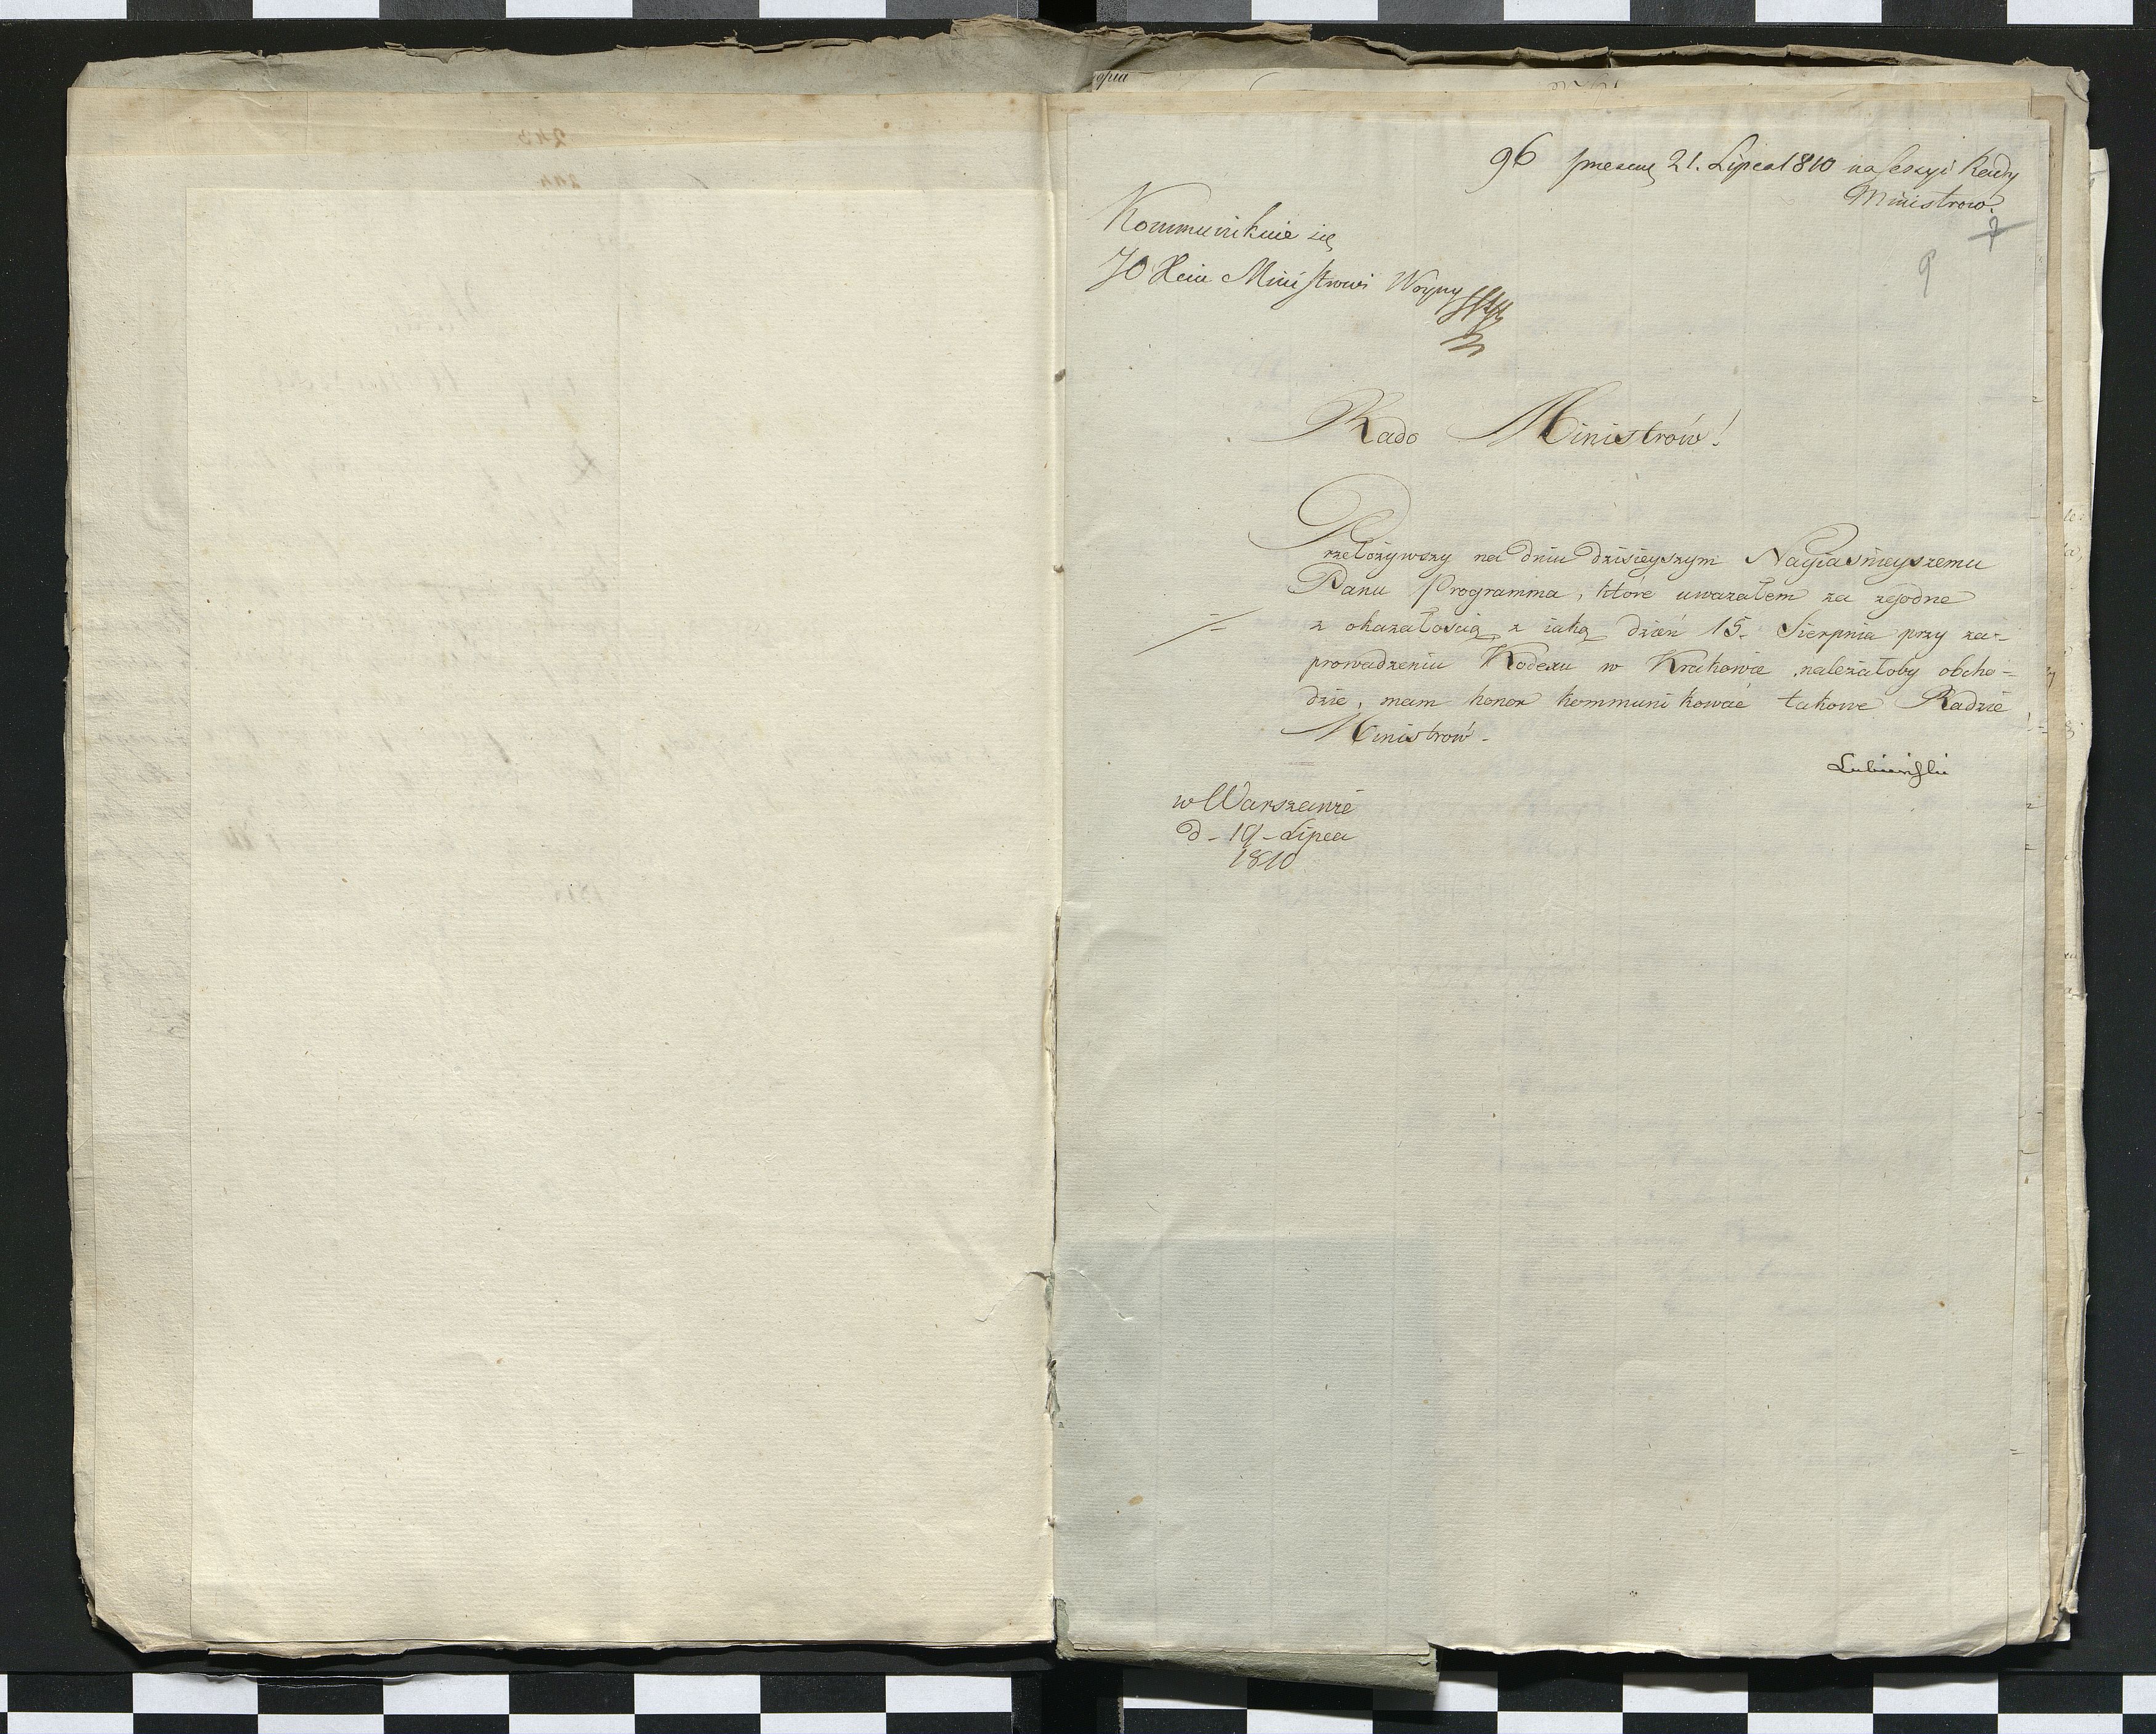 96 praesent 21. Lipca 1810 na Sessyi Rady
Ministrow.
7
9
Kommunikuie się
JO Xciu Ministrowi Woyny
Rado Ministrów!
Przełożywszy na dniu dzisieyszym Nayiaśnieyszemu
Panu Programma, które uwazałem za zgodne
z okazałością z iaką dzień 15. Sierpnia przy za-
prowadzeniu Kodexu w Krakowie należałoby obcho-
dzić, mam honor kommunikować takowe Radzie
Ministrów-
Lubieński
w Warszawie
d- 19- Lipca
1810